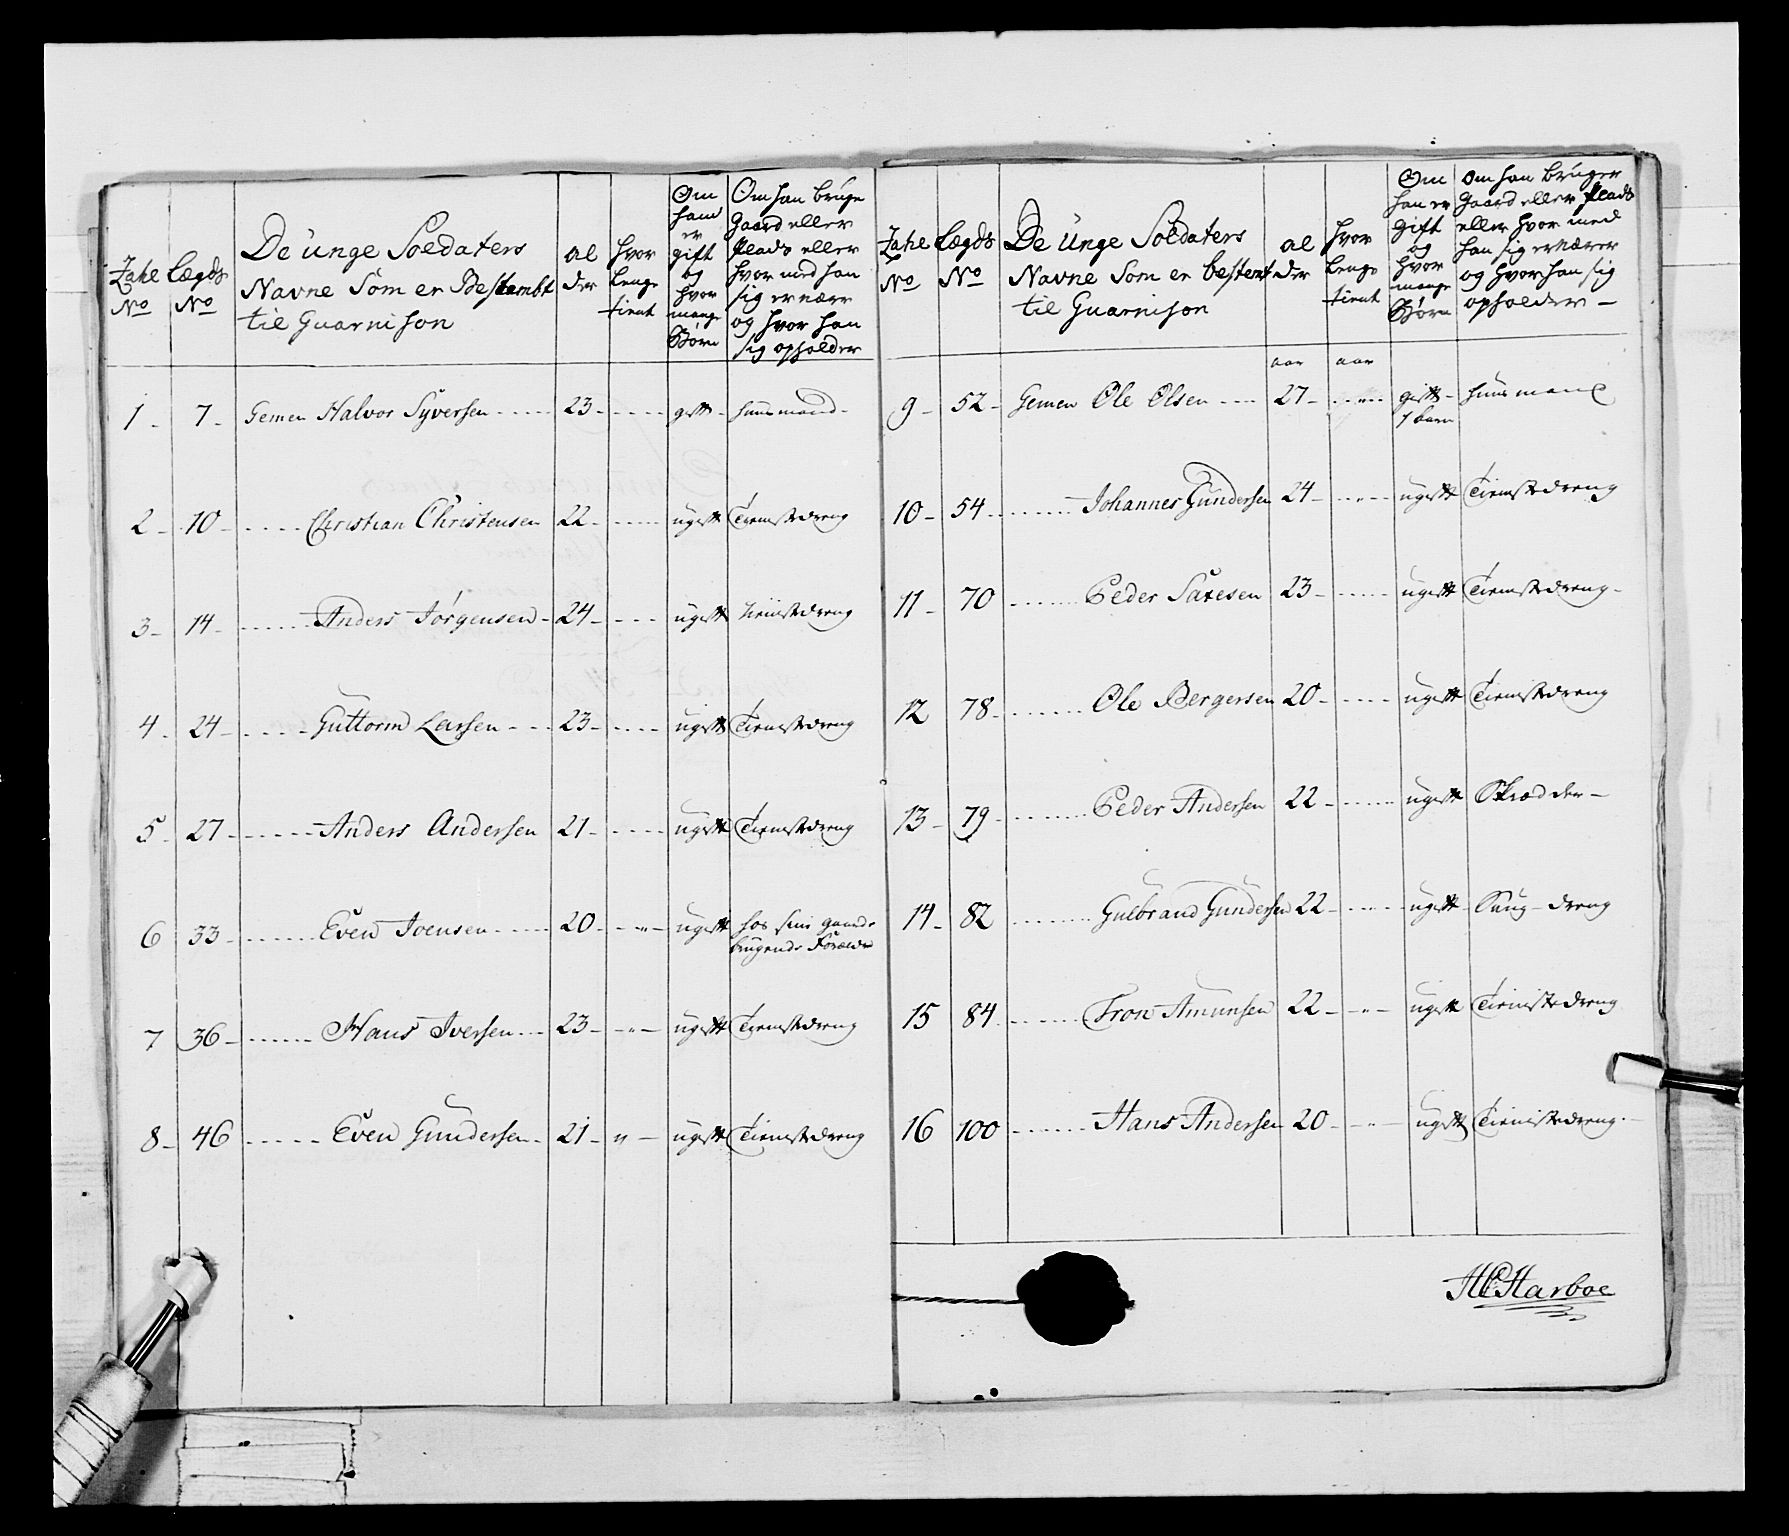 Zahl No
Lægds No
De unge Soldaters
Navne Som er Bestembt
til Guarnison
al
der
hvor
lenge
tient
Om
hand
er
gift
og
hvor
mange
Børn
Om han bruge
Gaard eller
Plads eller
hvor med han
sig ernære
og hvor han
sig opholder
1 - 7 - Gemen Halvor Syversen 23 - gift - huusmand -
2 - 10 - Christian Christensen 22 - ugift Tienstedreng
3 - 14 - Anders Jørgensen - 24 - ugift tienstdreng
4 - 24 - Guttorm Larsen 23 - ugift Tienstedreng
5 - 27 - Anders Andersen 21 - ugift Tienstedreng
6 33 - Even Joensen 20 - " - ugift hos sine gaard
brugende Foræld
7 36 - Hans Iversen 23 - " - ugift Tienstedreng
8 - 46 Even Gundersen 21 - " - ugift Tienstedreng
Zahl No
Lægds No
De Unge Soldaters
Navne Som er bestemt
til Guarnison
al
der
hvor
lenge
tient
Om
han er
gift
og
hvor
mange
Børn
Om han bruger
Gaard eller Plads
eller hvor med
han sig ernærer
og hvor han sig
opholder -
aar aar
9 - 52 - Gemen Ole Olsen 27 - " - gift - huusmand
1 barn
10 - 54 Johannes Gundersen 24 - " - ugift Tienstedreng
11 - 70 Peder Saxesen 23 - ugift Tienstedreng -
12 78 - Ole Bergersen 20 - ugift Tienstedreng
13 - 79 - Peder Andersen 22 - ugift Skrædder -
14 - 82 Gulbrand Gundersen 22 - " - ugift - dreng
15 84 Tron Amunsen 22 - " - ugift Tienistedreng
16 100 Hans Andersen 20 - " - ugift Tienistedreng -
HCHarboe